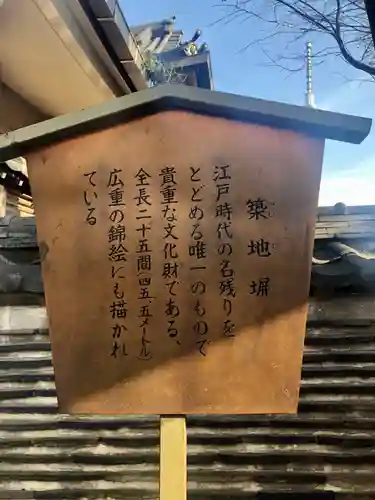 築地塀
江戸時代の名残りを
とどめる唯一のもので
貴重な文化財である、
全長二十五間(四五.五メートル)
広重の錦絵にも描かれ
ている